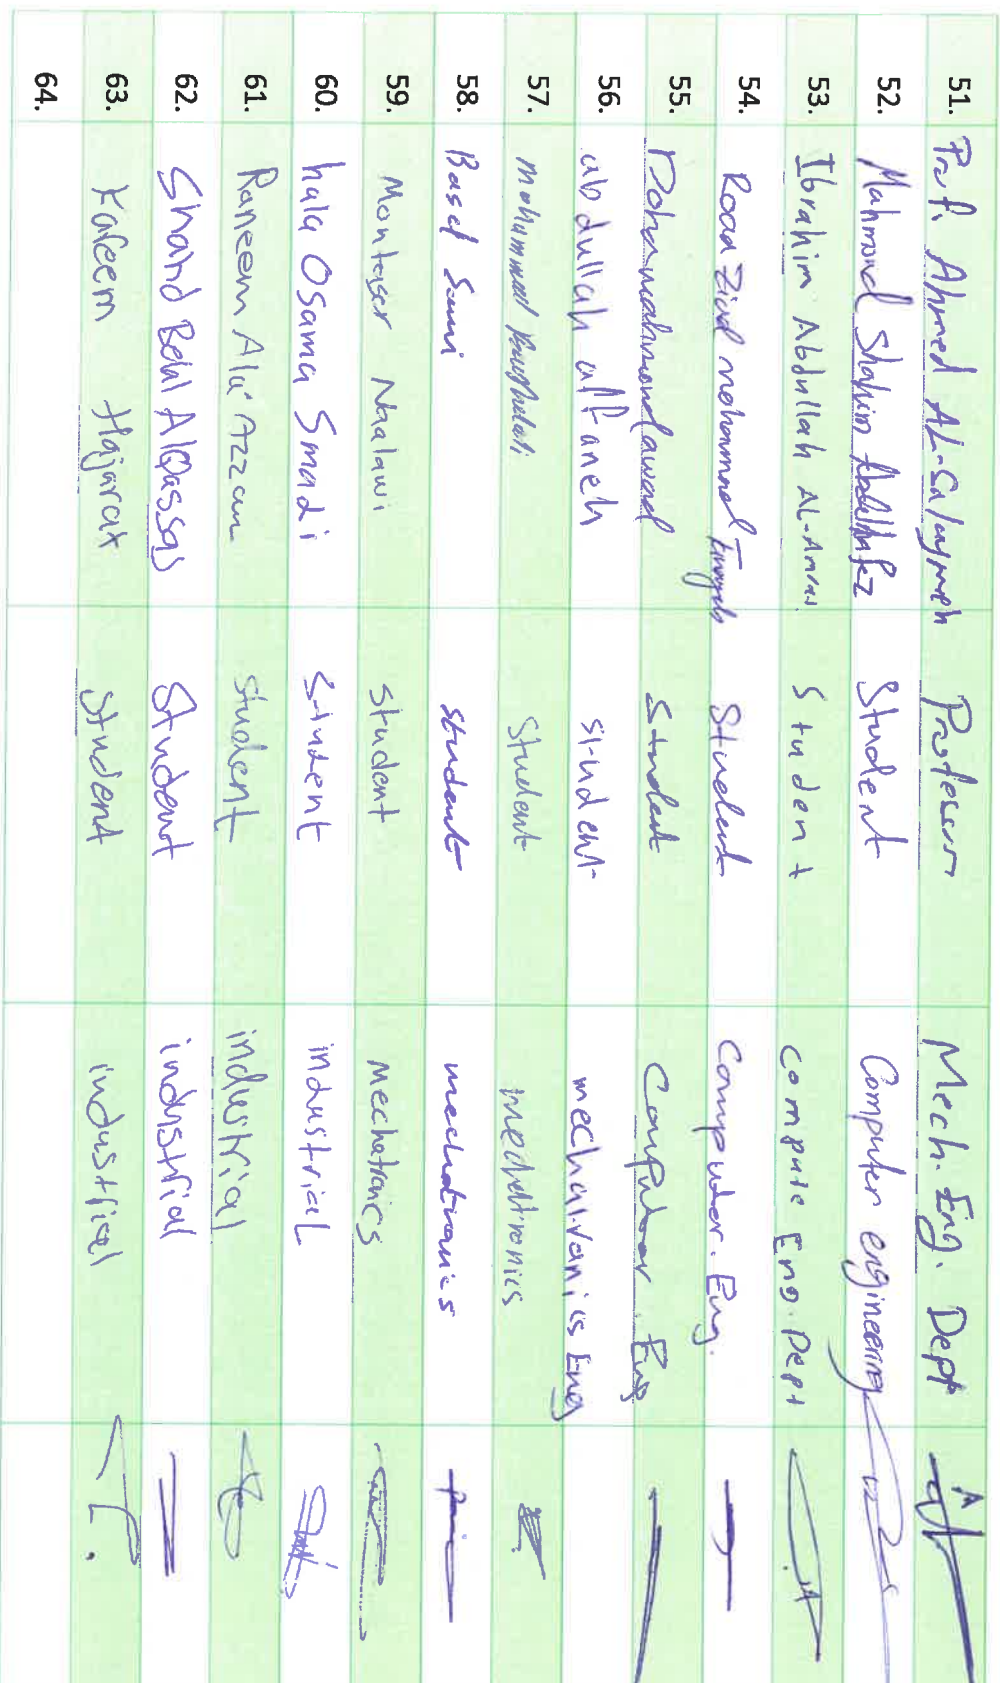 51. Prof. Ahmed AL-Salaymeh Professor Mech. Eng. Dept
52. Mahmoud Shahim Student Computer engineering
53. Ibrahim Abdullah AL-Amras Student Compute Eng. Dept
54. Roaa Ziad mohammad Student Computer. Eng.
55. Doha mahmoud awad Student Computer Eng
56. abdullah altaneh student Eng
57. mohummad Student mechatronics
58. Basel Sami student mechatronics
59. Monteser Nahlawi student Mechatronics
60. hala Osama Smadi Student industrial
61. Raneem Ala' Azzam student industrial
62. Shahd Belal AlQassas Student industrial
63. Kareem Hajarat Student industrial
64.